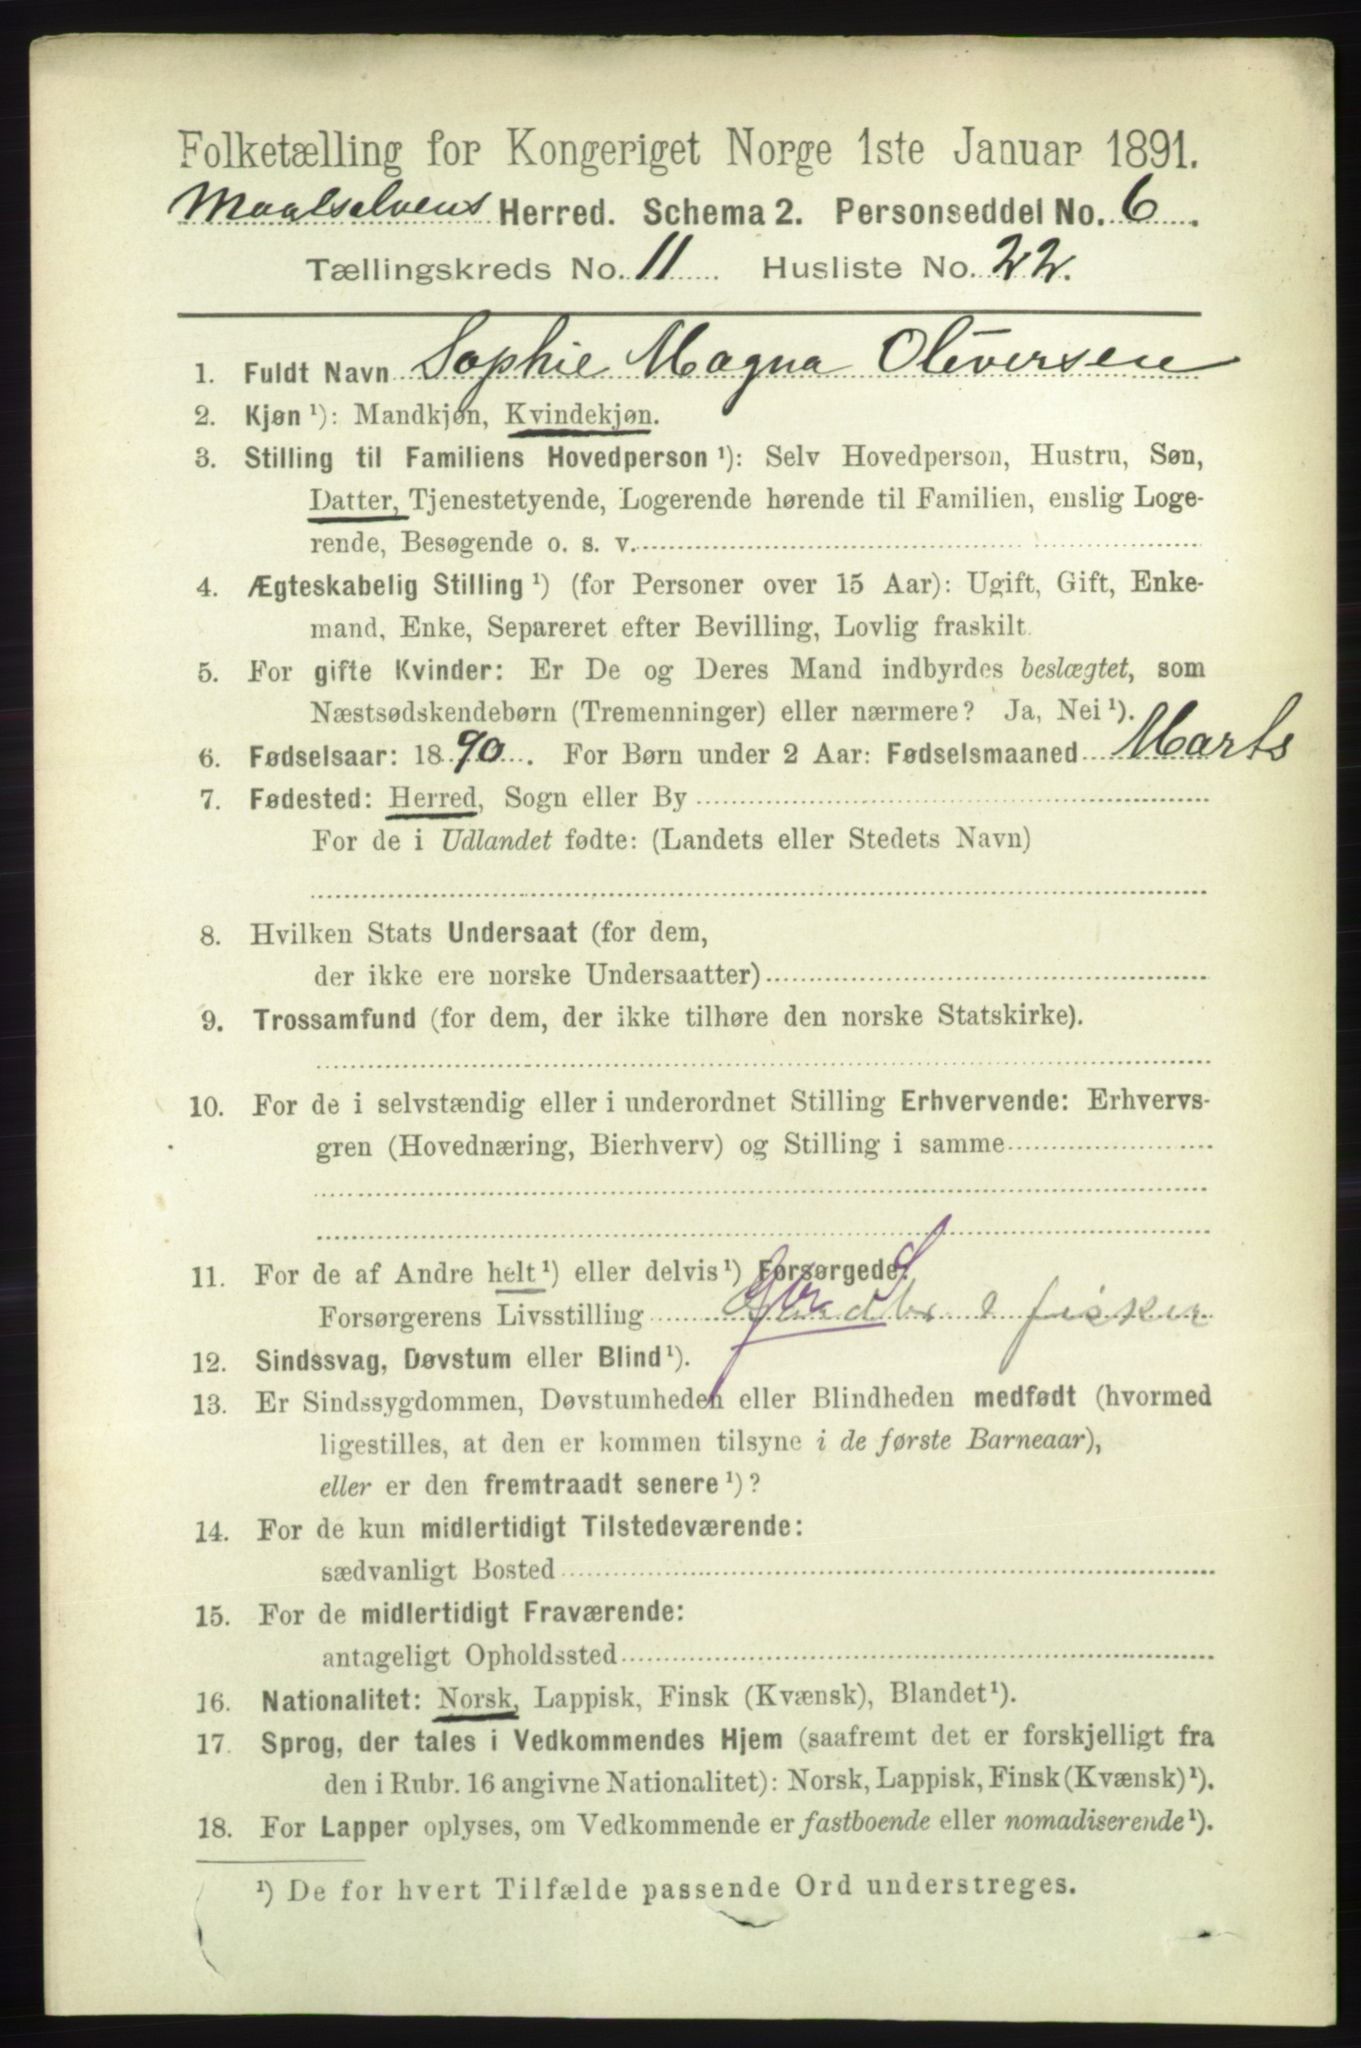 Folketælling for Kongeriget Norge 1ste Januar 1891.
Maalselvens Herred. Schema 2. Personseddel No. 6.
Tællingskreds No. 11 Husliste No. 22.
1. Fuldt Navn Sophie Magna Oliversen
2. Kjøn ¹): Mandkjøn, Kvindekjøn.
3. Stilling til Familiens Hovedperson ¹): Selv Hovedperson, Hustru, Søn,
Datter, Tjenestetyende, Logerende hørende til Familien, enslig Loge-
rende, Besøgende o. s. v.
4. Ægteskabelig Stilling ¹) (for Personer over 15 Aar): Ugift, Gift, Enke-
mand, Enke, Separeret efter Bevilling, Lovlig fraskilt.
5. For gifte Kvinder: Er De og Deres Mand indbyrdes beslægtet, som
Næstsødskendebørn (Tremenninger) eller nærmere? Ja, Nei ¹).
6. Fødselsaar: 1890. For Børn under 2 Aar: Fødselsmaaned Marts
7. Fødested: Herred, Sogn eller By
For de i Udlandet fødte: (Landets eller Stedets Navn)
8. Hvilken Stats Undersaat (for dem,
der ikke ere norske Undersaatter)
9. Trossamfund (for dem, der ikke tilhøre den norske Statskirke).
10. For de i selvstændig eller i underordnet Stilling Erhvervende: Erhvervs-
gren (Hovednæring, Bierhverv) og Stilling i samme
11. For de af Andre helt ¹) eller delvis ¹) Forsørgede:
Forsørgerens Livsstilling Gaardbr & fisker
12. Sindssvag, Døvstum eller Blind ¹).
13. Er Sindssygdommen, Døvstumheden eller Blindheden medfødt (hvormed
ligestilles, at den er kommen tilsyne i de første Barneaar),
eller er den fremtraadt senere ¹)?
14. For de kun midlertidigt Tilstedeværende:
sædvanligt Bosted
15. For de midlertidigt Fraværende:
antageligt Opholdssted
16. Nationalitet: Norsk, Lappisk, Finsk (Kvænsk), Blandet ¹).
17. Sprog, der tales i Vedkommendes Hjem (saafremt det er forskjelligt fra
den i Rubr. 16 angivne Nationalitet): Norsk, Lappisk, Finsk (Kvænsk) ¹).
18. For Lapper oplyses, om Vedkommende er fastboende eller nomadiserende ¹).
¹) De for hvert Tilfælde passende Ord understreges.